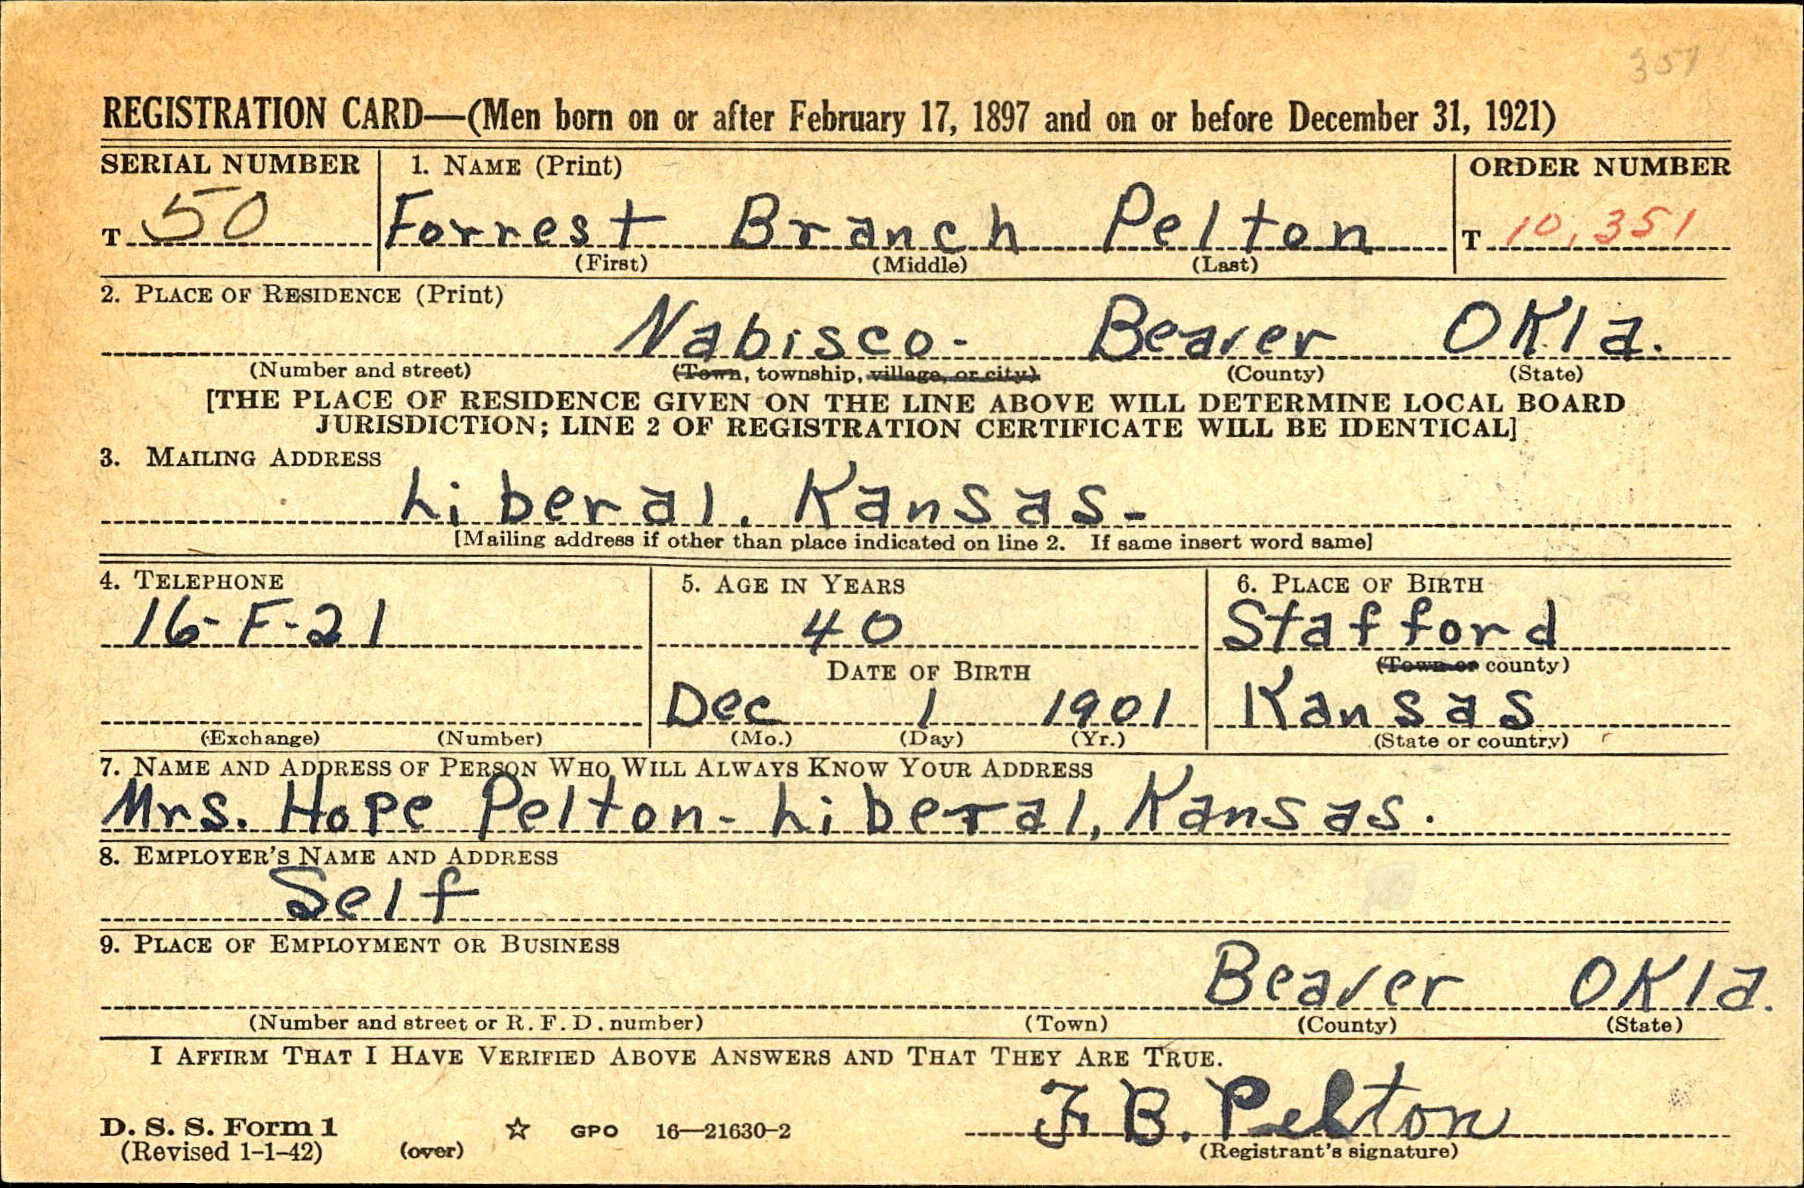 351
REGISTRATION CARD—(Men born on or after February 17, 1897 and on or before December 31, 1921)
SERIAL NUMBER 1. NAME (Print) ORDER NUMBER
T 50 Forrest Branch Pelton T 10,351
(First) (Middle) (Last)
2. PLACE OF RESIDENCE (Print)
Nabisco- Beaver Okla.
(Number and street) (Town, township, village, or city) (County) (State)
[THE PLACE OF RESIDENCE GIVEN ON THE LINE ABOVE WILL DETERMINE LOCAL BOARD
JURISDICTION; LINE 2 OF REGISTRATION CERTIFICATE WILL BE IDENTICAL]
3. MAILING ADDRESS
Liberal. Kansas-
[Mailing address if other than place indicated on line 2. If same insert word same]
4. TELEPHONE 5. AGE IN YEARS 6. PLACE OF BIRTH
16-F-21 40 Stafford
DATE OF BIRTH (Town or county)
Dec 1 1901 Kansas
(Exchange) (Number) (Mo.) (Day) (Yr.) (State or country)
7. NAME AND ADDRESS OF PERSON WHO WILL ALWAYS KNOW YOUR ADDRESS
Mrs. Hope Pelton- Liberal, Kansas.
8. EMPLOYER'S NAME AND ADDRESS
Self
9. PLACE OF EMPLOYMENT OR BUSINESS
Beaver Okla.
(Number and street or R. F. D. number) (Town) (County) (State)
I AFFIRM THAT I HAVE VERIFIED ABOVE ANSWERS AND THAT THEY ARE TRUE.
F B. Pelton
D. S. S. Form 1 ☆ GPO 16—21630-2
(Revised 1-1-42) (over) (Registrant's signature)